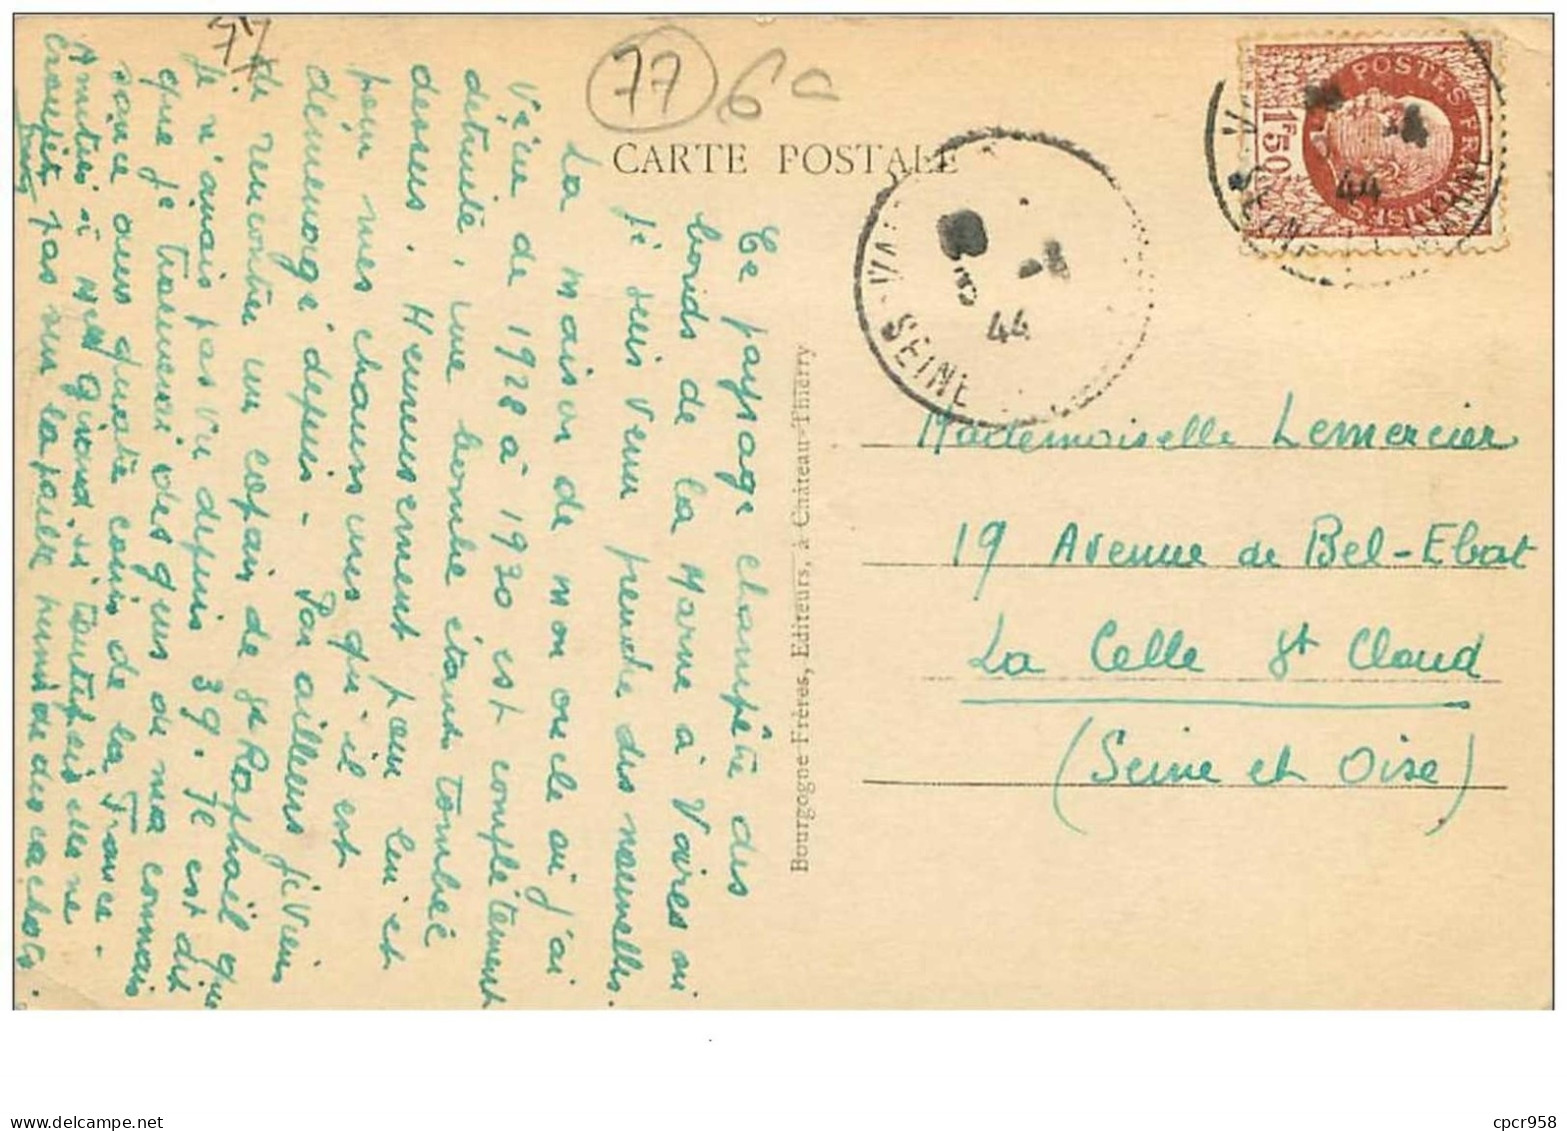 77
77
6a
CARTE POSTALE
POSTES FRANÇAISES
1F50
44
SEINE
44
SEINE
Ce paysage champêtre des
bords de la Marne à Vaires où
je suis venu prendre des nouvelles.
La maison de mon oncle où j'ai
vécu de 1928 à 1930 est complètement
détruite, une bombe étant tombée
dessus. Heureusement pour lui et
pour mes chaussures qu'il est
déménagé depuis. Par ailleurs je viens
de rencontrer un copain de St Raphaël que
je n'avais pas vu depuis 39. Je est dit
que je trouverai des gens de ma connais
sance aux quatre coins de la France.
Amitiés à Mme Giraud si toutefois elle ne
croupit pas sur la paille humide des cachots.
Bourgogne Frères, Editeurs, à Château-Thierry
Mademoiselle Lemercier
19 Avenue de Bel-Ebat
La Celle St Cloud
(Seine et Oise)
cpcr958